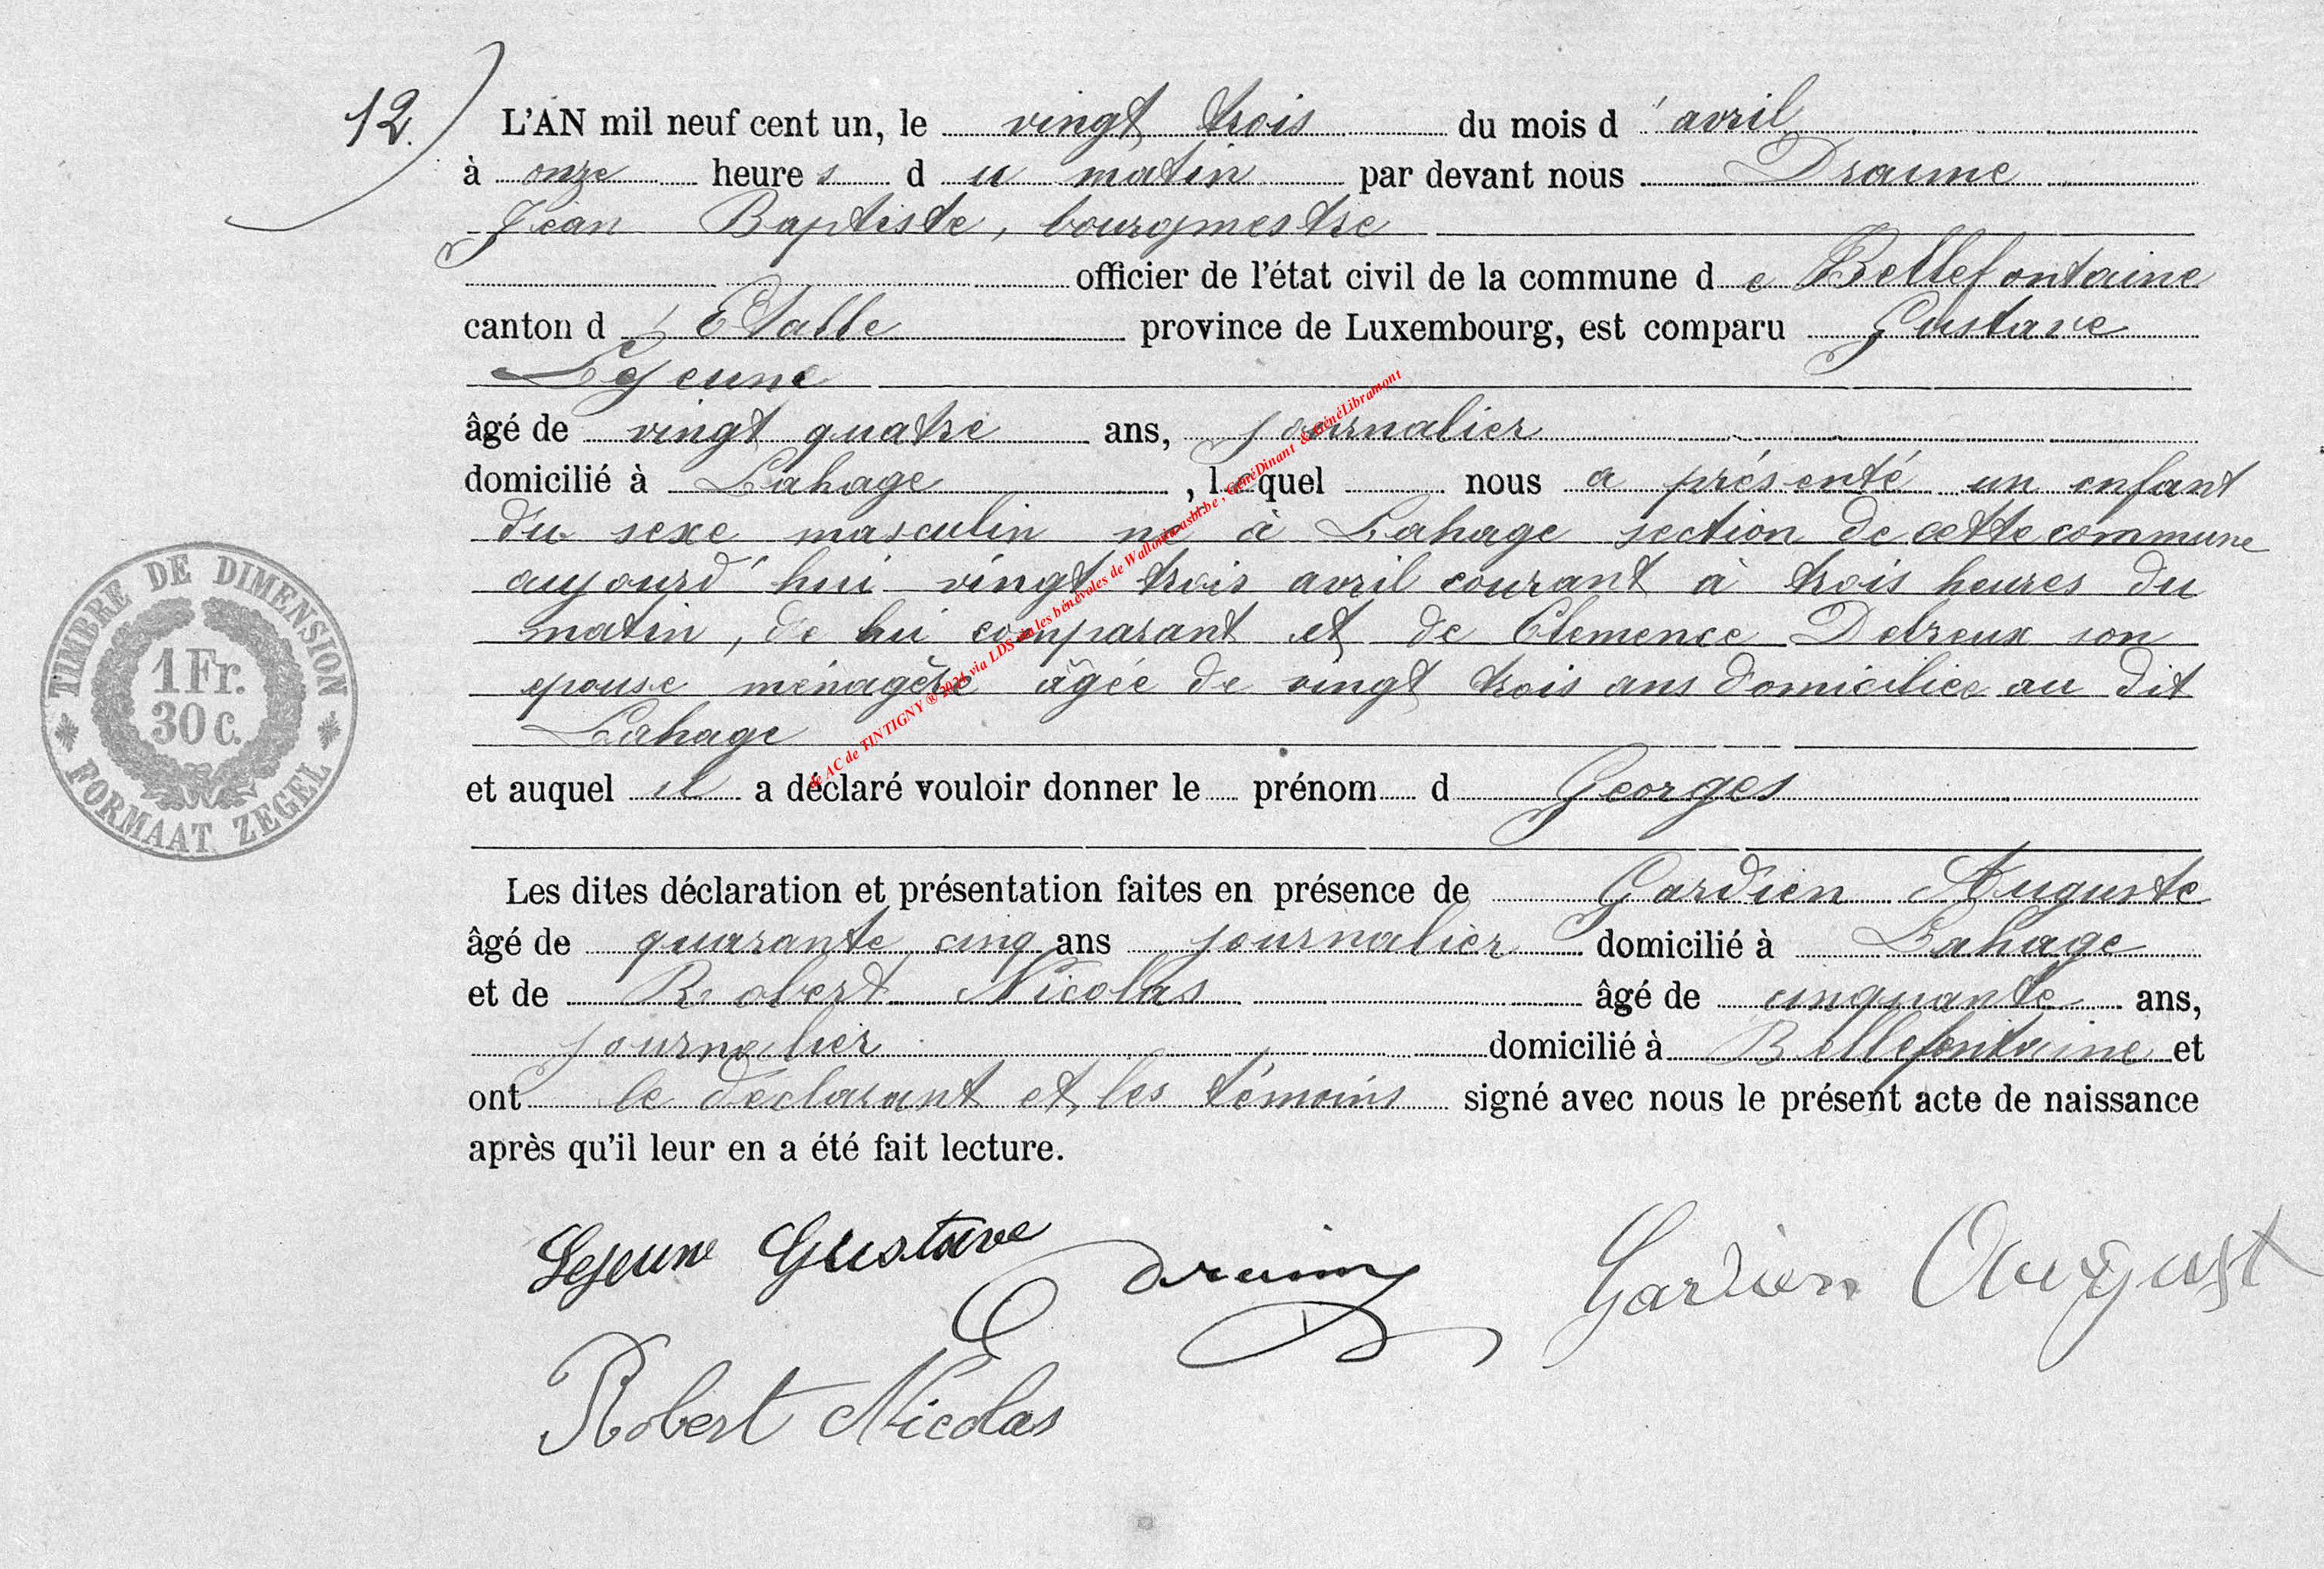 12.
L'AN mil neuf cent un, le vingt trois du mois d'avril
à onze heures du matin par devant nous Draime
Jean Baptiste, bourgmestre
officier de l'état civil de la commune de Bellefontaine
canton d'Etalle province de Luxembourg, est comparu Gustave
Lejeune
âgé de vingt quatre ans, journalier
domicilié à Lahage, lequel nous a présenté un enfant
du sexe masculin né à Lahage section de cette commune
aujourd'hui vingt trois avril courant à trois heures du
matin, de lui comparant et de Clémence Delreux son
epouse ménagère âgée de vingt trois ans domiciliée au dit
Lahage
et auquel il a déclaré vouloir donner le prénom d Georges
Les dites déclaration et présentation faites en présence de Gardien Auguste
âgé de quarante cinq ans journalier domicilié à Lahage
et de Robert Nicolas âgé de cinquante ans,
journalier domicilié à Bellefontaine et
ont le déclarant et les témoins signé avec nous le présent acte de naissance
après qu'il leur en a été fait lecture.
Lejeune Gustave Draime Gardien August
Robert Nicolas
TIMBRE DE DIMENSION
1 Fr.
30 c.
FORMAAT ZEGEL
de AC de TINTIGNY ® 2024 via LDS via les bénévoles de Wallonica-asbl.be, GénéDinant & GénéLibramont